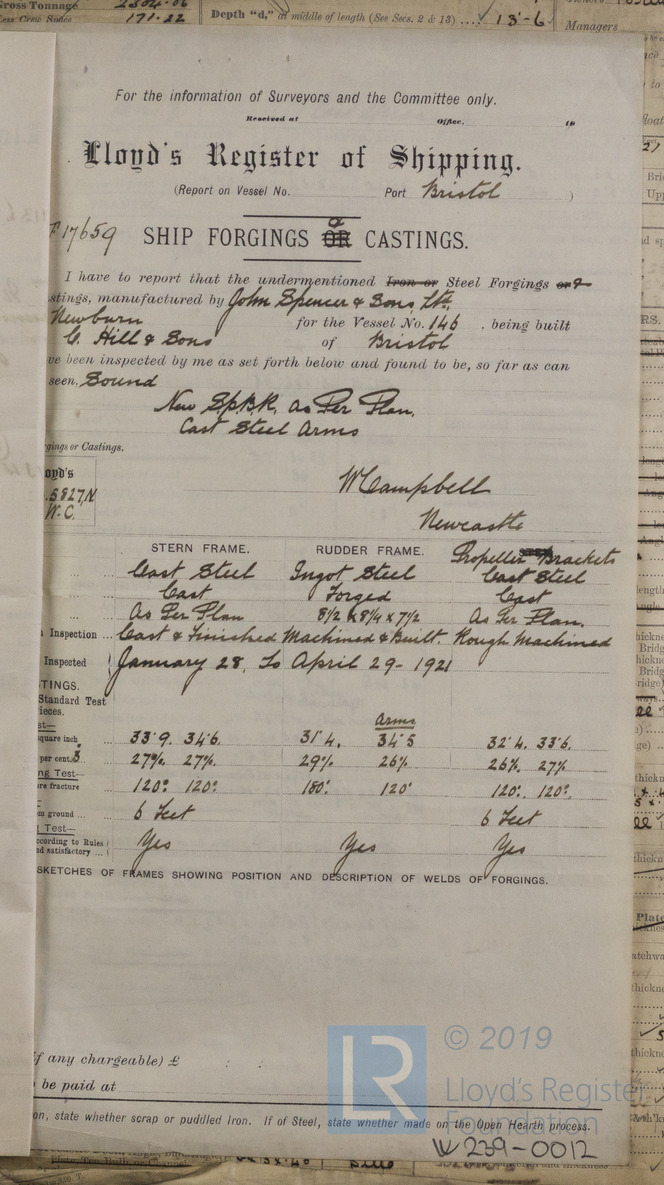 Gross Tonnage 2504.06
171.22
Depth "d," at middle of length (See Secs. 2 & 13) .... 13'-6
Managers
For the information of Surveyors and the Committee only.
Received at Office, 19
Lloyd's Register of Shipping.
(Report on Vessel No. Port Bristol )
17659
SHIP FORGINGS OR & CASTINGS.
I have to report that the undermentioned Iron or Steel Forgings or &
stings, manufactured by John Spencer & Sons, Ltd.
Newburn for the Vessel No. 146 , being built
C. Hill & Sons of Bristol
ve been inspected by me as set forth below and found to be, so far as can
seen, Sound
New As Per Plan.
Cast Steel Arms
gings or Castings.
oyd's
5827,N
W.C.
W Campbell
Newcastle
STERN FRAME. RUDDER FRAME. Propeller Brackets
Cast Steel Ingot Steel Cast Steel
Cast Forged Cast
As Per Plan 8 1/2 x 8 1/4 x 7 1/2 As Per Plan.
Inspection ... Cast & Finished Machined & Built. Rough Machined
Inspected January 28, To April 29 - 1921
TINGS.
Standard Test
ieces.
st—
Arms
quare inch 33.9. 34.6. 31.4. 34.5 32.4. 33.6.
per cent. 3 27%. 27%. 29%. 26% 26%. 27%
ng Test—
re fracture 120° 120° 180° 120° 120°. 120°.
n ground ... 6 Feet 6 Feet
Test—
ccording to Rules
nd satisfactory ... Yes Yes Yes
SKETCHES OF FRAMES SHOWING POSITION AND DESCRIPTION OF WELDS OF FORGINGS.
if any chargeable) £ : :
be paid at
on, state whether scrap or puddled Iron. If of Steel, state whether made on the Open Hearth process.
LR
© 2019
Lloyd's Register
Foundation
W239-0012